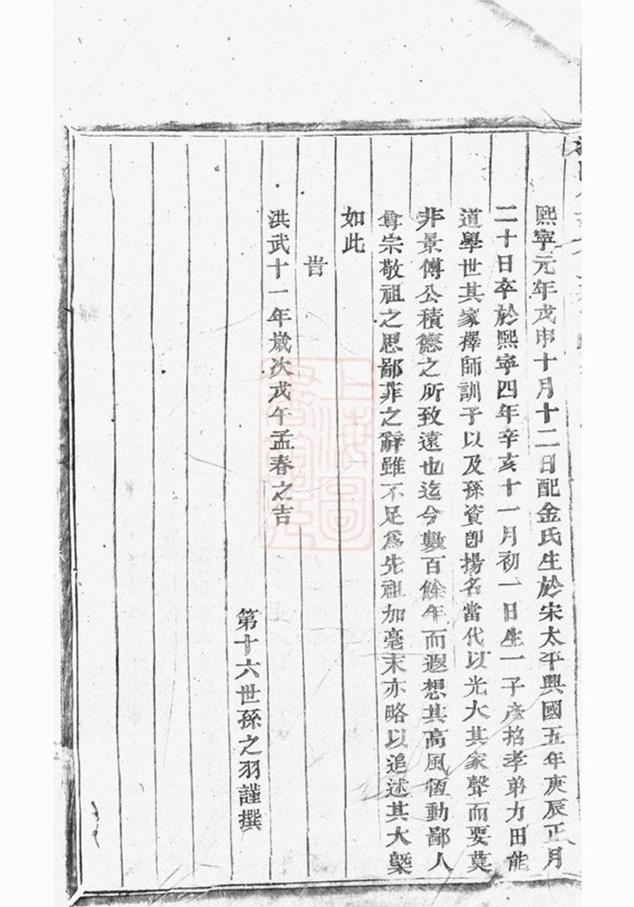 熙寧元年戊申十月十二日配金氏生於宋太平興國五年庚辰正月
二十日卒於熙寧四年辛亥十一月初一日生一子彥招孝弟力田能
道學世其家擇師訓子以及孫資卽揚名當代以光大其家聲而要莫
非景傅公積德之所致遠也迄今數百餘年而遐想其高風恆動鄙人
尊宗敬祖之思鄙菲之辭雖不足爲先祖加毫末亦略以追述其大槩
如此
旹
洪武十一年歲次戊午孟春之吉
第十六世孫之羽謹撰
上海圖